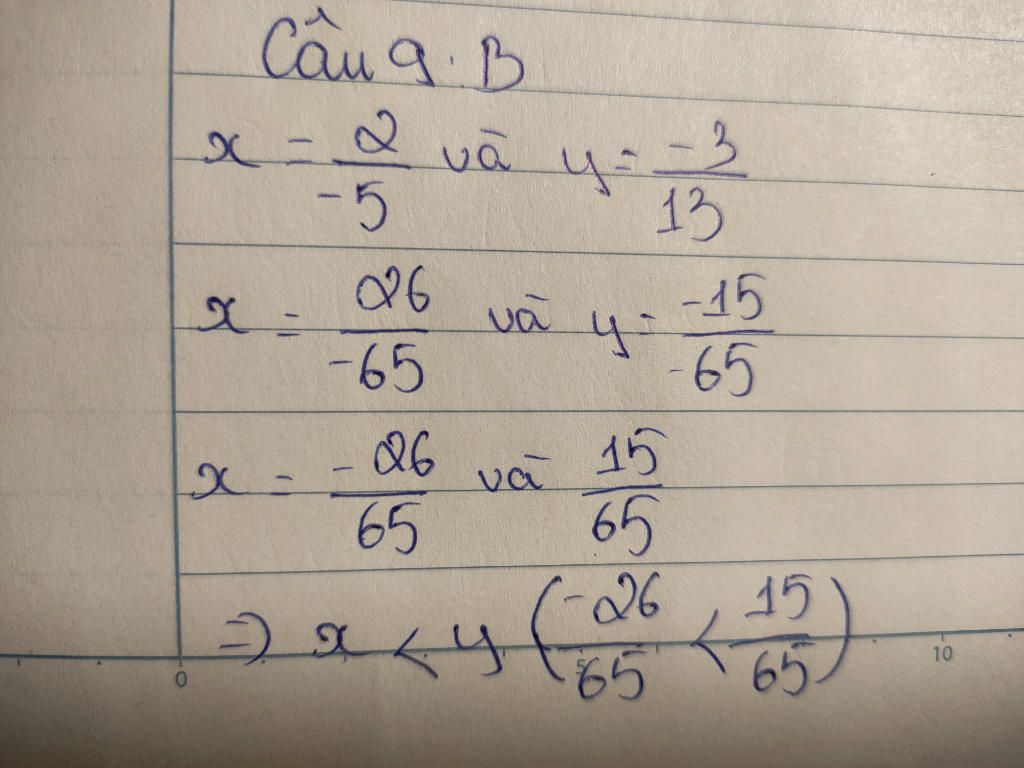 Câu 9. B
x = 2/-5 và y = -3/13
x = 26/-65 và y = -15/-65
x = -26/65 và 15/65
=> x < y (-26/65 < 15/65)
0 5 10